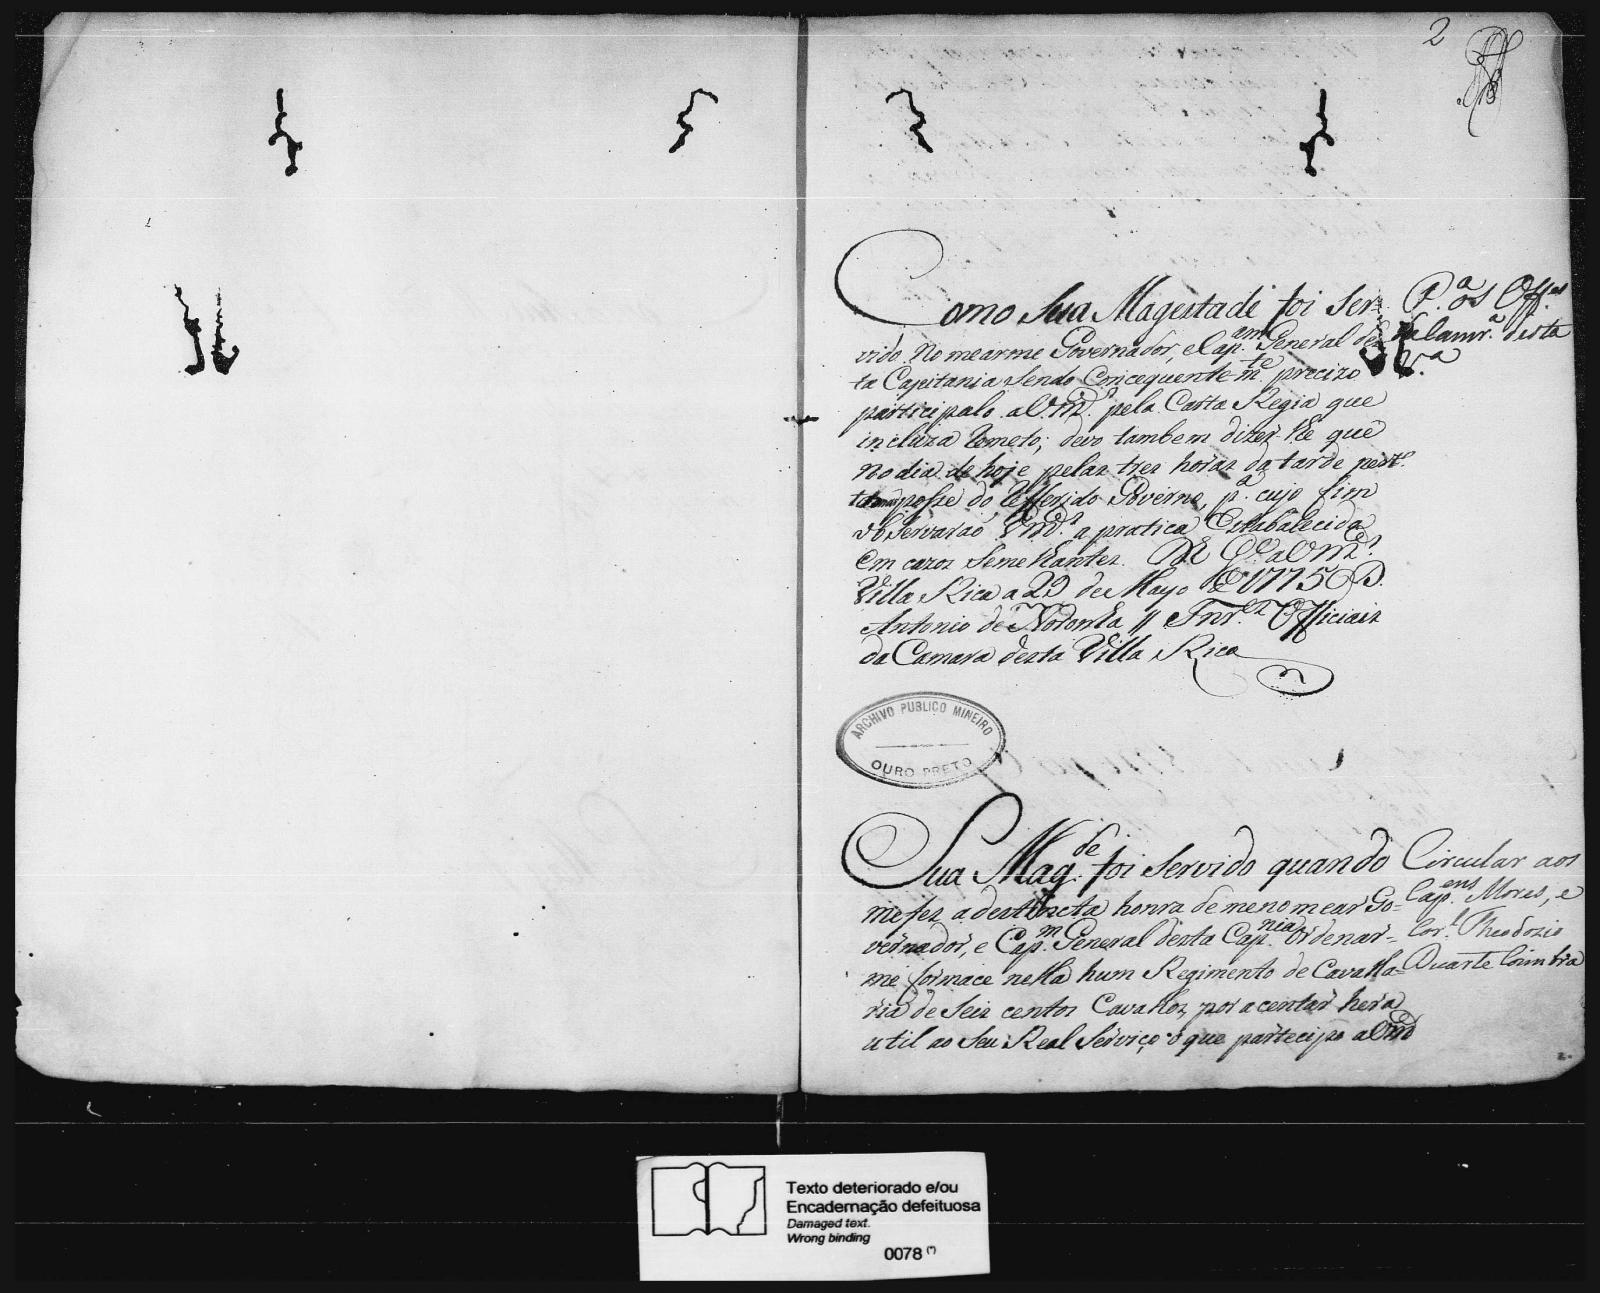 2
Como Sua Magestade foi ser-
vido nomearme Governador, e Cap.am General des
ta Capitania sendo conceguentem.te precizo
participalo a Vm.ces pela Carta Regia que
incluza Remeto; devo tambem dizer lhe que
no dia de hoje pelas tres horas da tarde
posse do Refferido Governo, p.a cujo fim
observaraõ Vm.ces a pratica Estabalecida
em cazos semelhantes. D.s G.e a Vm.ces
Villa Rica a 29 de Mayo de 1775 D.
Antonio de Noronha // Snr.es Officiais
da Camara desta Villa Rica
P.a os Off.es
da Camr.a desta
V.a
ARCHIVO PUBLICO MINEIRO
OURO PRETO
Sua Mag.de foi servido quando
me fez a destincta honra de me nomear Go=
vernador, e Cap.m General desta Cap.nia ordenar=
me formace nella hum Regimento de Cavalla=
ria de seis centos Cavallos, por acentar hera
util ao seu Real Serviço o que partecipo a Vm.ce
Circular aos
Cap.ens Mores, e
Cor.l Theodozio
Duarte Coimbra
Texto deteriorado e/ou
Encadernação defeituosa
Damaged text.
Wrong binding
0078 (*)